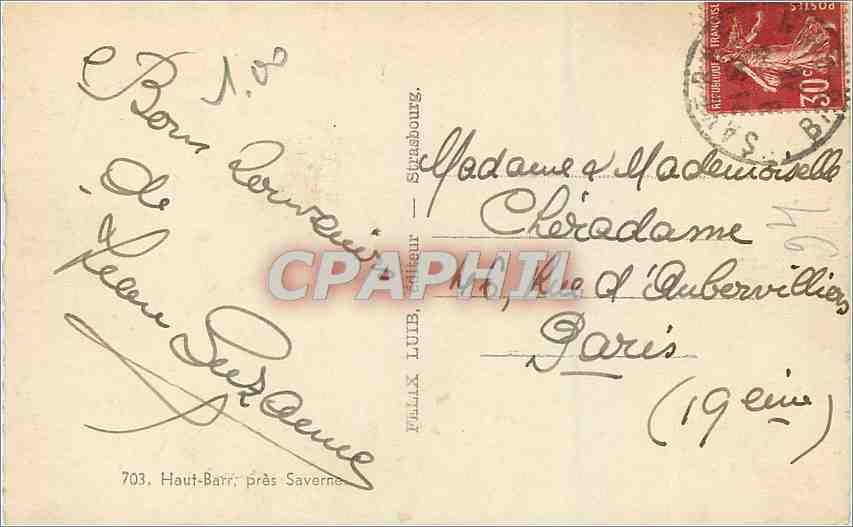 1.00
Bons Souvenirs
de
Jean Suzanne
703. Haut-Barr, près Saverne
FELIX LUIB, éditeur — Strasbourg.
CPAPHIL
POSTES
REPUBLIQUE FRANÇAISE
30c
SAVERNE
B
94
Madame & Mademoiselle
Chéradame
46, Rue d'Aubervilliers
Paris
(19eme)